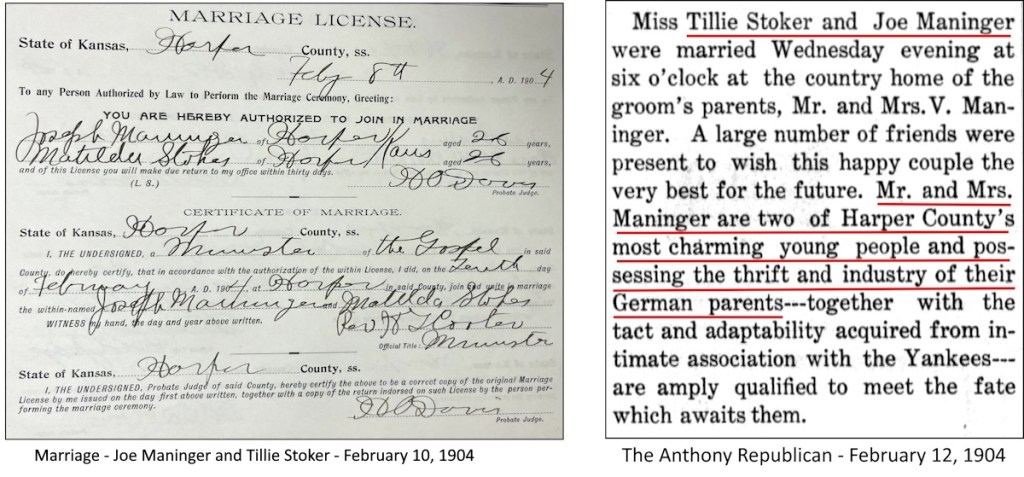 MARRIAGE LICENSE.
State of Kansas, Harper County, ss.
Feby 8th A. D. 1904
To any Person Authorized by Law to Perform the Marriage Ceremony, Greeting:
YOU ARE HEREBY AUTHORIZED TO JOIN IN MARRIAGE
Joseph Maninger of Harper Kans aged 26 years,
Matilda Stokes of Harper Kans aged 26 years,
and of this License you will make due return to my office within thirty days.
(L. S.) H O Davis
Probate Judge.
CERTIFICATE OF MARRIAGE.
State of Kansas, Harper County, ss.
I, THE UNDERSIGNED, a Minister of the Gospel in said
County, do hereby certify, that in accordance with the authorization of the within License, I did, on the Tenth day
of February A. D. 1904 at Harper in said County, join and unite in marriage
the within-named Joseph Maninger and Matilda Stokes
WITNESS my hand, the day and year above written. Rev
Official Title: Minister
State of Kansas, Harper County, ss.
I, THE UNDERSIGNED, Probate Judge of said County, hereby certify the above to be a correct copy of the original Marriage
License by me issued on the day first above written, together with a copy of the return indorsed on such License by the person per-
forming the marriage ceremony. H O Davis
Probate Judge.
Marriage - Joe Maninger and Tillie Stoker - February 10, 1904
Miss Tillie Stoker and Joe Maninger
were married Wednesday evening at
six o'clock at the country home of the
groom's parents, Mr. and Mrs. V. Man-
inger. A large number of friends were
present to wish this happy couple the
very best for the future. Mr. and Mrs.
Maninger are two of Harper County's
most charming young people and pos-
sessing the thrift and industry of their
German parents---together with the
tact and adaptability acquired from in-
timate association with the Yankees---
are amply qualified to meet the fate
which awaits them.
The Anthony Republican - February 12, 1904